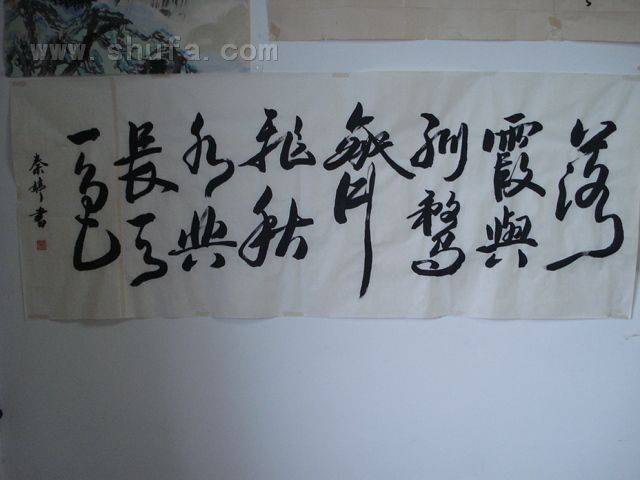 www.shufa.com
落
霞與
孤鶩
齊
飛秋
水共
長天
一色
秦 書